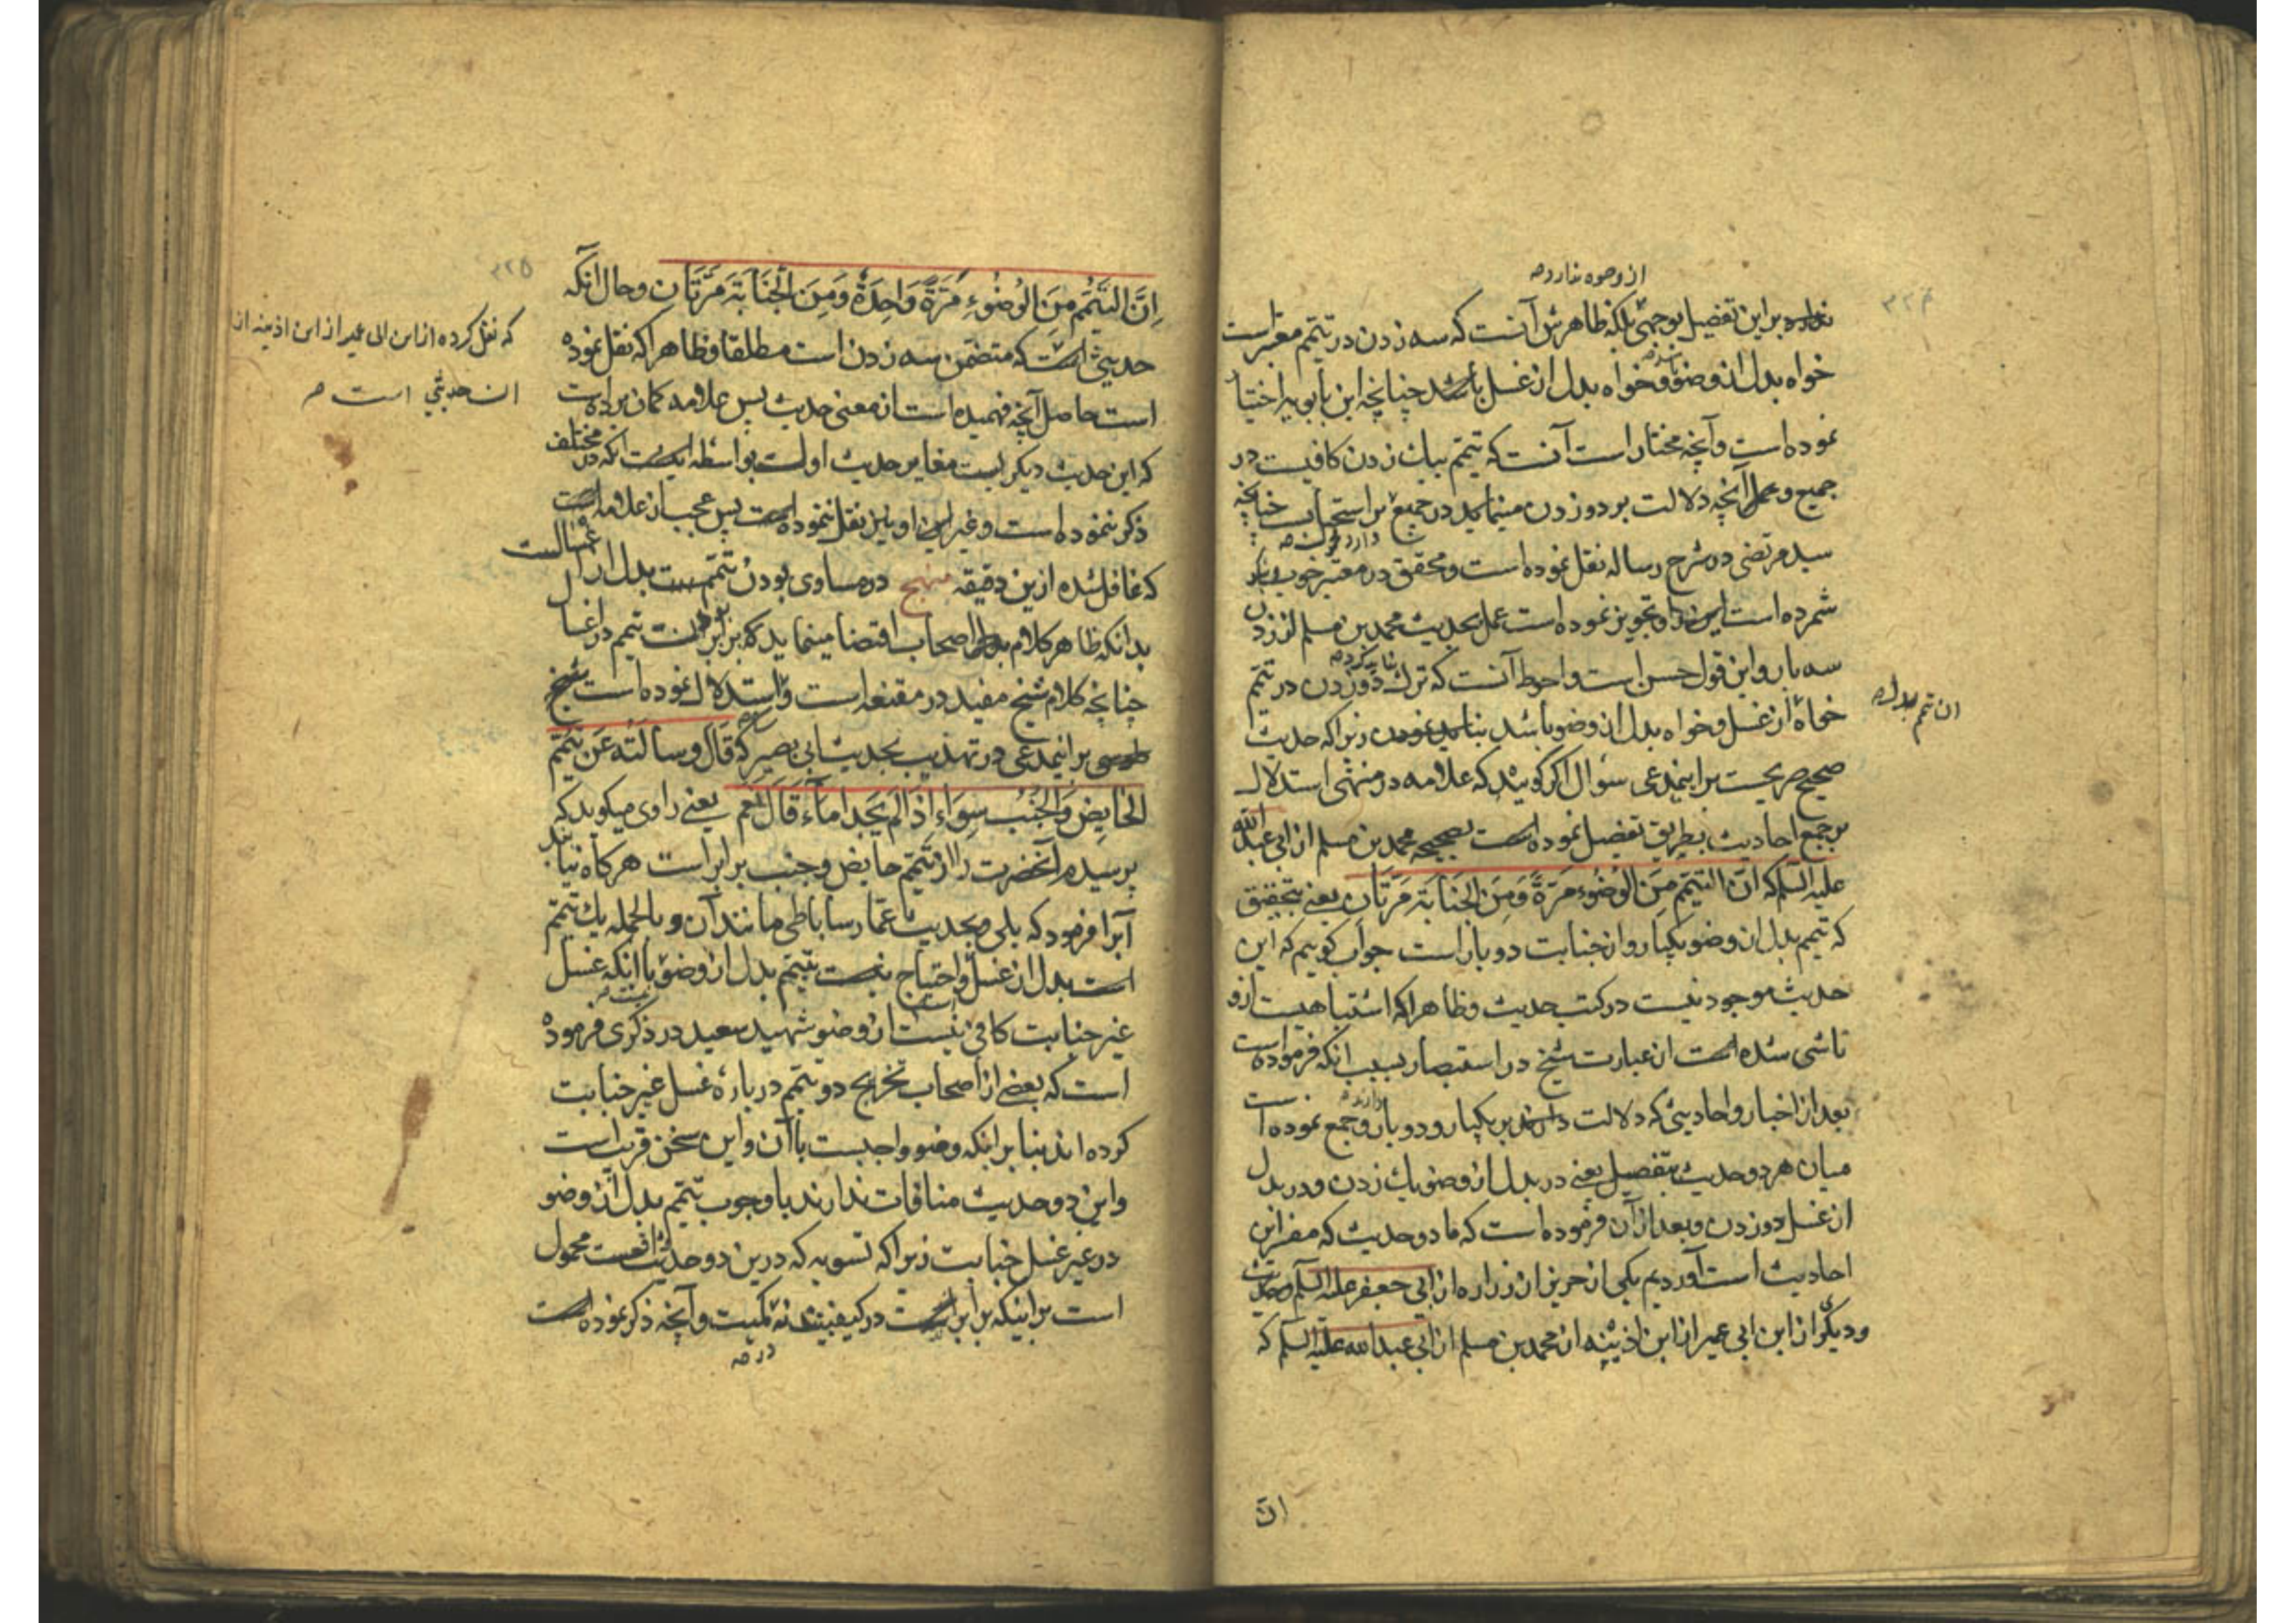 از وجوه ندارد صه
۳۲۴
برین تفضیل بوجهی بلکه ظاهرش آنست که سه زدن در تیمّم معتبر است
خواه بدل از وضو و خواه بدل از غسل باشد چنانچه ابن بابویه اختیا
نموده است و آنچه مختار است آنست که تیمّم بیك زدن کافیست در
جمیع و عمل آنچه دلالت بر دو زدن مینماید در جمیع بر استحبابست چنانچه
سید مرتضی در شرح رساله نقل نموده است و محقق در معتبر خوب
شمرده است این را و تجویز نموده است عمل بحدیث محمد بن مسلم از زدن
سه بار و این قول حسن است و احوط آنست که ترك دو زدن در تیمّم
خواه از غسل و خواه بدل از وضو باشد زیرا که حدیث
صحیح صریحست بر اینمدعی سؤال اگر گویند که علامه در منتهی استدلال
بر جمع احادیث بطریق تفضیل نموده است بصحیحه محمد بن مسلم از ابی عبد الله
علیه السلم که انّ التیمّم مِنَ الوُضُوءِ مَرّةً وَمِنَ الجَنابَةِ مَرّتَانِ یعنی بتحقیق
که تیمم بدل از وضو یکبار و از جنابت دو بار است جواب گوییم که این
حدیث موجود نیست در کتب حدیث و ظاهرا که اشتباهیست از و
ناشی شده است از عبارت شیخ در استبصار بسبب انکه فرموده است
بعد از اخبار و احادیثی که دلالت دارند بر یکبار و دو بار و جمع نموده است
میان هر دو حدیث بتفصیل یعنی در بدل از وضو یك زدن و در بدل
از غسل دو زدن و بعد از آن فرموده است که ما دو حدیث که مفسّر این
احادیث است آوردیم یکی از حریز از زراره از ابی جعفر علیه السلم
و دیگر از ابن ابی عمیر از ابن اذینه از محمد بن مسلم از ابی عبد الله علیه السلم که
انّ
۳۲۵
اِنَّ التَیَمُّمَ مِنَ الوُضُوءِ مَرّةً وَاحِدَةً وَمِنَ الجَنَابَةِ مَرَّتَانِ و حال آنکه
حدیثی است که متضمن سه زدن است مطلقا و ظاهرا که نقل نموده
است حاصل آنچه فهمیده است از معنی حدیث پس علامه کمان برده است
که این حدیث دیگریست مغایر حدیث اولست بواسطه آنکه در مختلف
ذکر ننموده است و غیر این اولین نقل ننموده است پس عجب از علامه است
که غافل شده ازین دقیقه منهج در مساوی بودن تیمّم بدل از اغسالست
بدانکه ظاهر کلام اصحاب اقتضا مینماید که برابر است تیمم در اغسال
چنانچه کلام شیخ مفید در مقنعه است و استدلال نموده است شیخ
طوسی بر اینمدعی در تهذیب بحدیث ابی بصیر که قَالَ وسألتُه عَن تیَمّم
الحَایِضِ وَالجُنُب سِوَاء اِذَا لَم یَجِدا ماءً قَالَ نعم یعنی راوی میگوید که
پرسیدم آنحضرت را از تیمّم حایض و جنب برابر است هر گاه نیابند
آبرا فرمود که بلی و بحدیث عمّار ساباطی مانند آن و بالجمله یك تیمّم
است بدل از غسل و احتیاج نیست بتیمّم بدل از وضو با آنکه غسل
غیر جنابت کافی نیست از وضو شهید سعید در ذکری فرموده
است که بعضی از اصحاب تخریج دو تیمّم در باره غسل غیر جنابت
کرده اند بنا بر انکه وضو واجبست با آن و این سخن قریب است
و این دو حدیث منافات ندارند با وجوب تیمّم بدل از وضو
در غیر غسل جنابت زیرا که تسویه که درین دو حدیث واقعست محمول
است بر اینکه برابر است در کیفیت نه کمیت و آنچه ذکر نموده است
در صه
که نقل کرده از ابن ابی عمیر از ابن اذینه از
ان حدیثی است صه